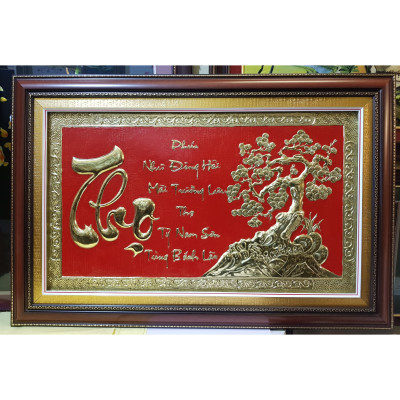 Thọ
Phúc
Như Đông Hải
Mãi Trường Lưu
Thọ
Tỷ Nam Sơn
Tùng Bách Lão